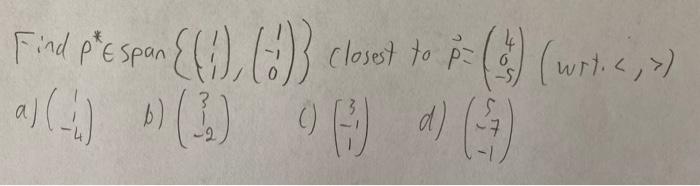 Find p*∈span{(1 1 1), (1 -1 0)} closest to p⃗=(4 0 -5) (wrt. <,>)
a) (1 1 -4) b) (3 1 -2) c) (3 -1 1) d) (5 -7 -1)